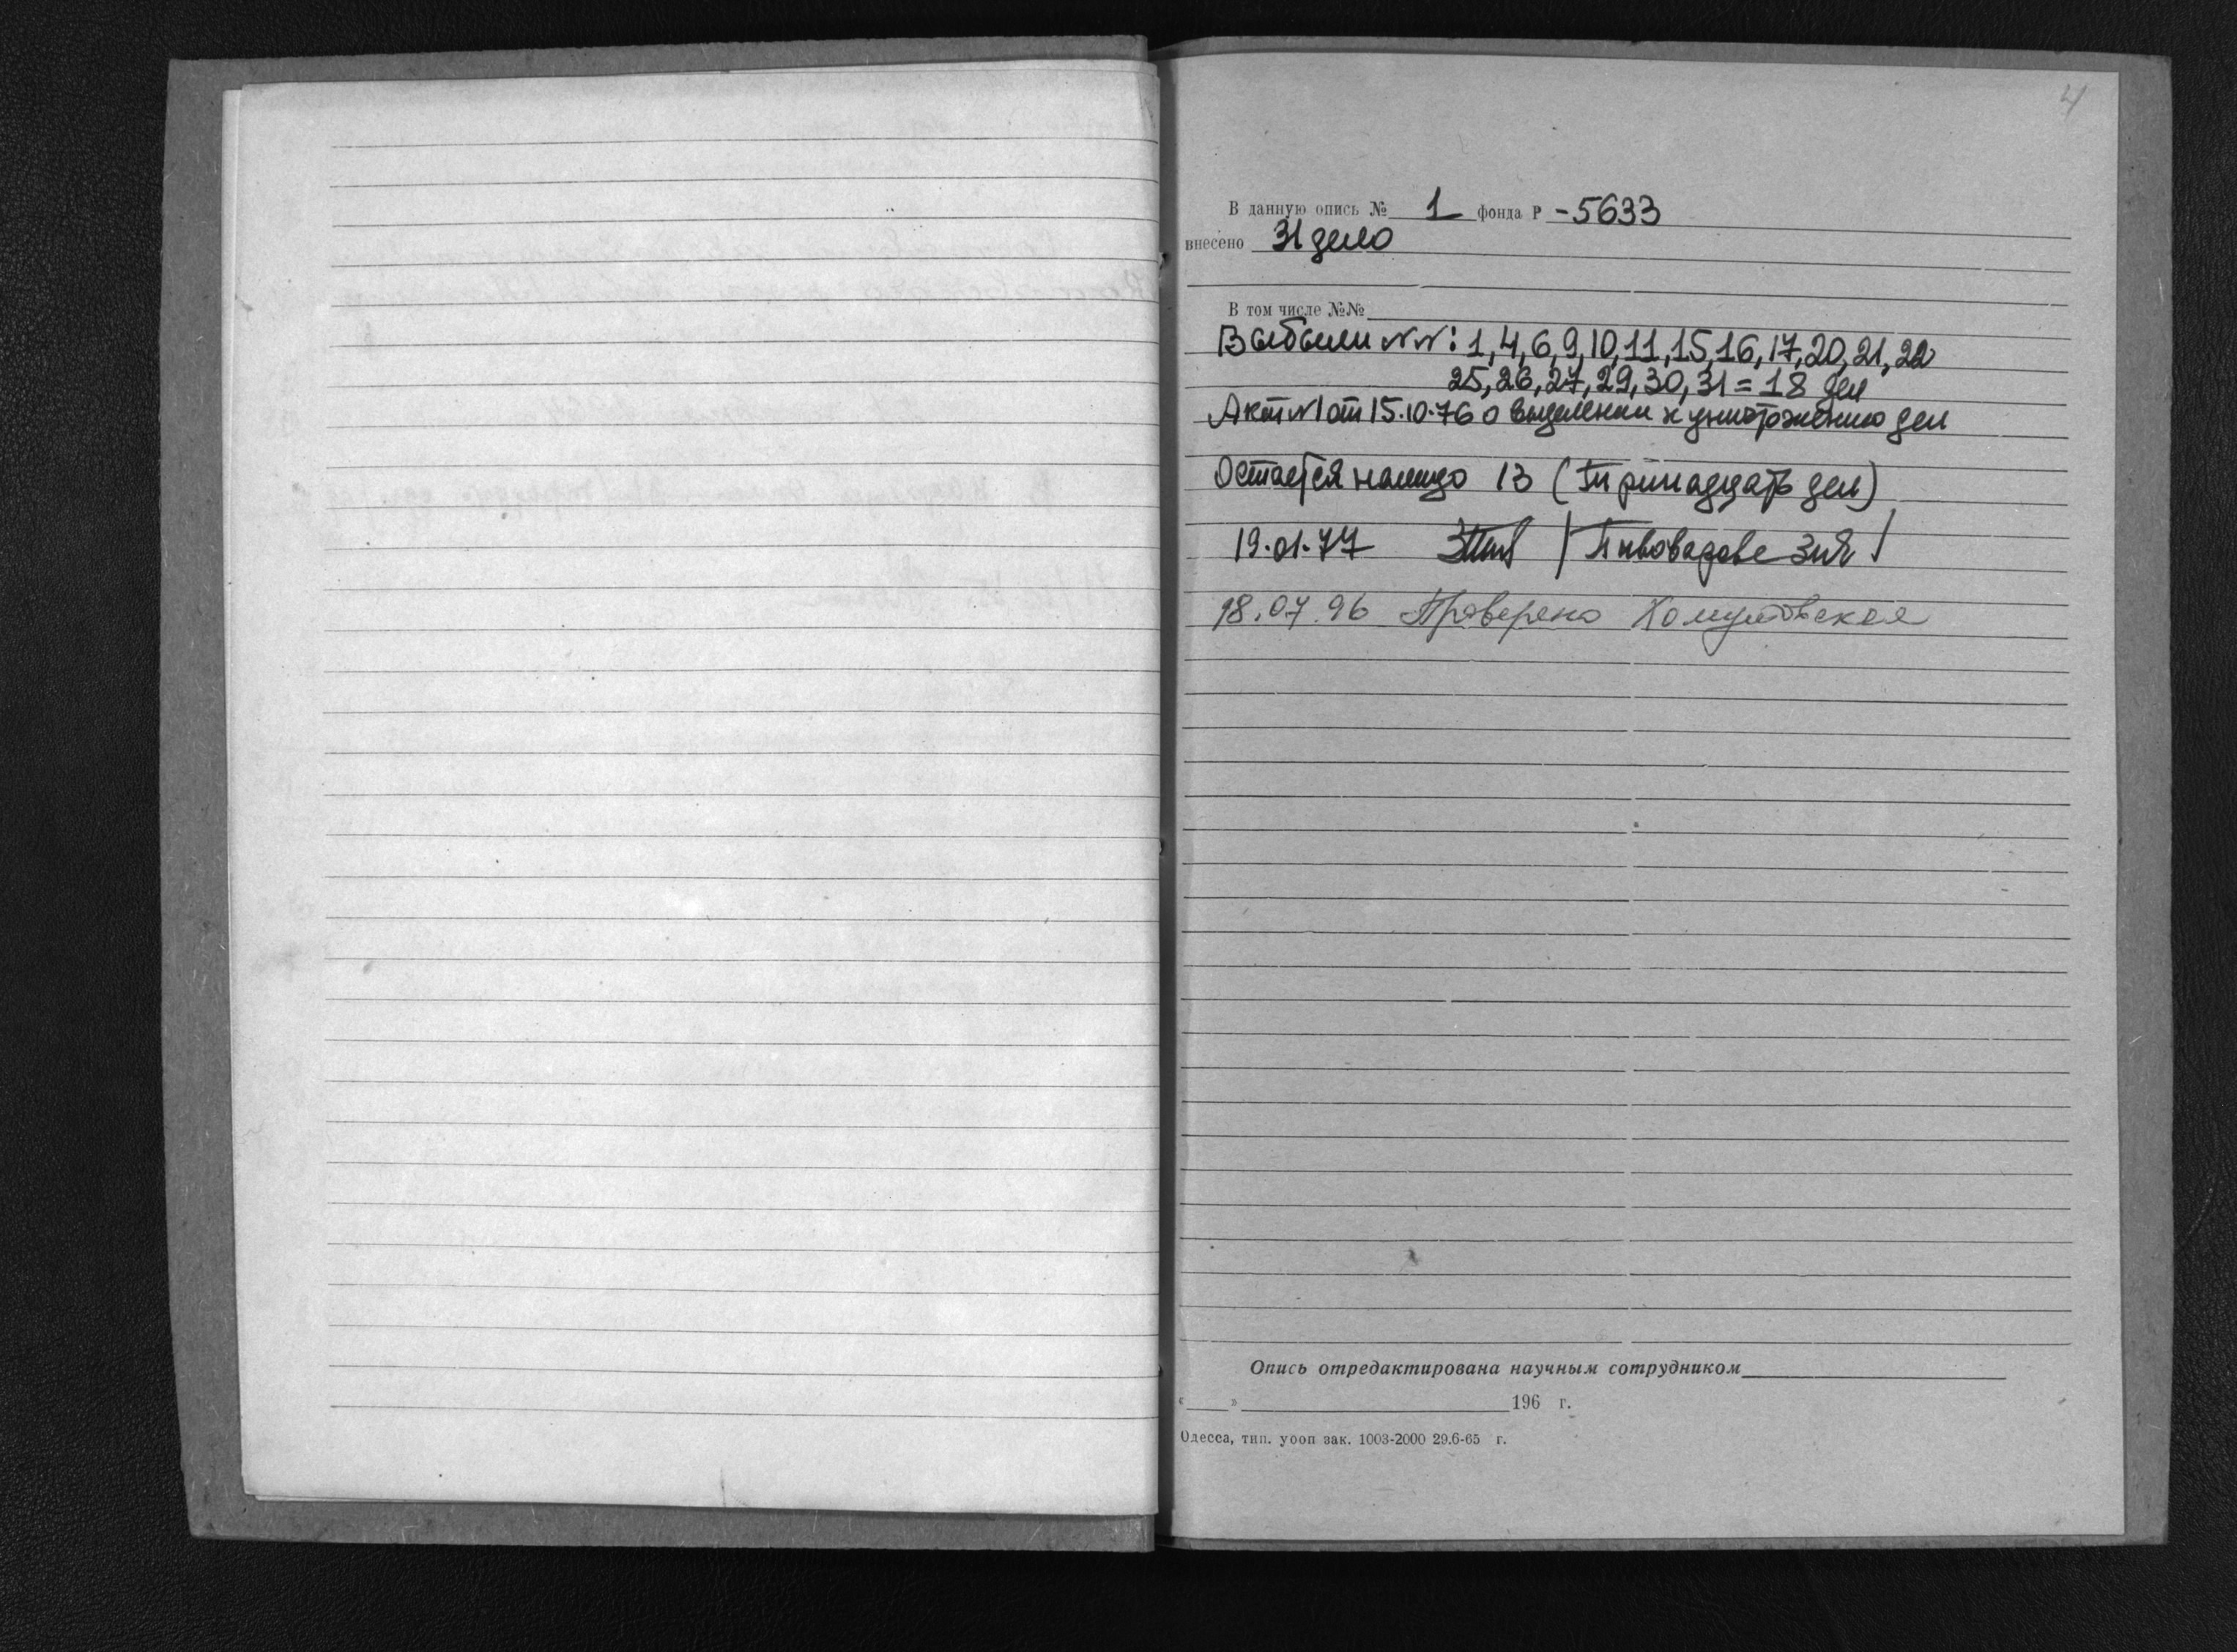 4
В данную опись № 1 фонда Р -5633
внесено 31 дело
В том числе №№
Выбыли №№: 1, 4, 6, 9, 10, 11, 15, 16, 17, 20, 21, 22
25, 26, 27, 29, 30, 31 = 18 дел
Акт №1 от 15.10.76 о выделении к уничтожению дел
Остается налицо 13 (Тринадцать дел)
19.01.77 / Пивоварова /
18.07.96 Проверено Хомутовская
Опись отредактирована научным сотрудником
« » 196 г.
Одесса, тип. уооп зак. 1003-2000 29.6-65 г.